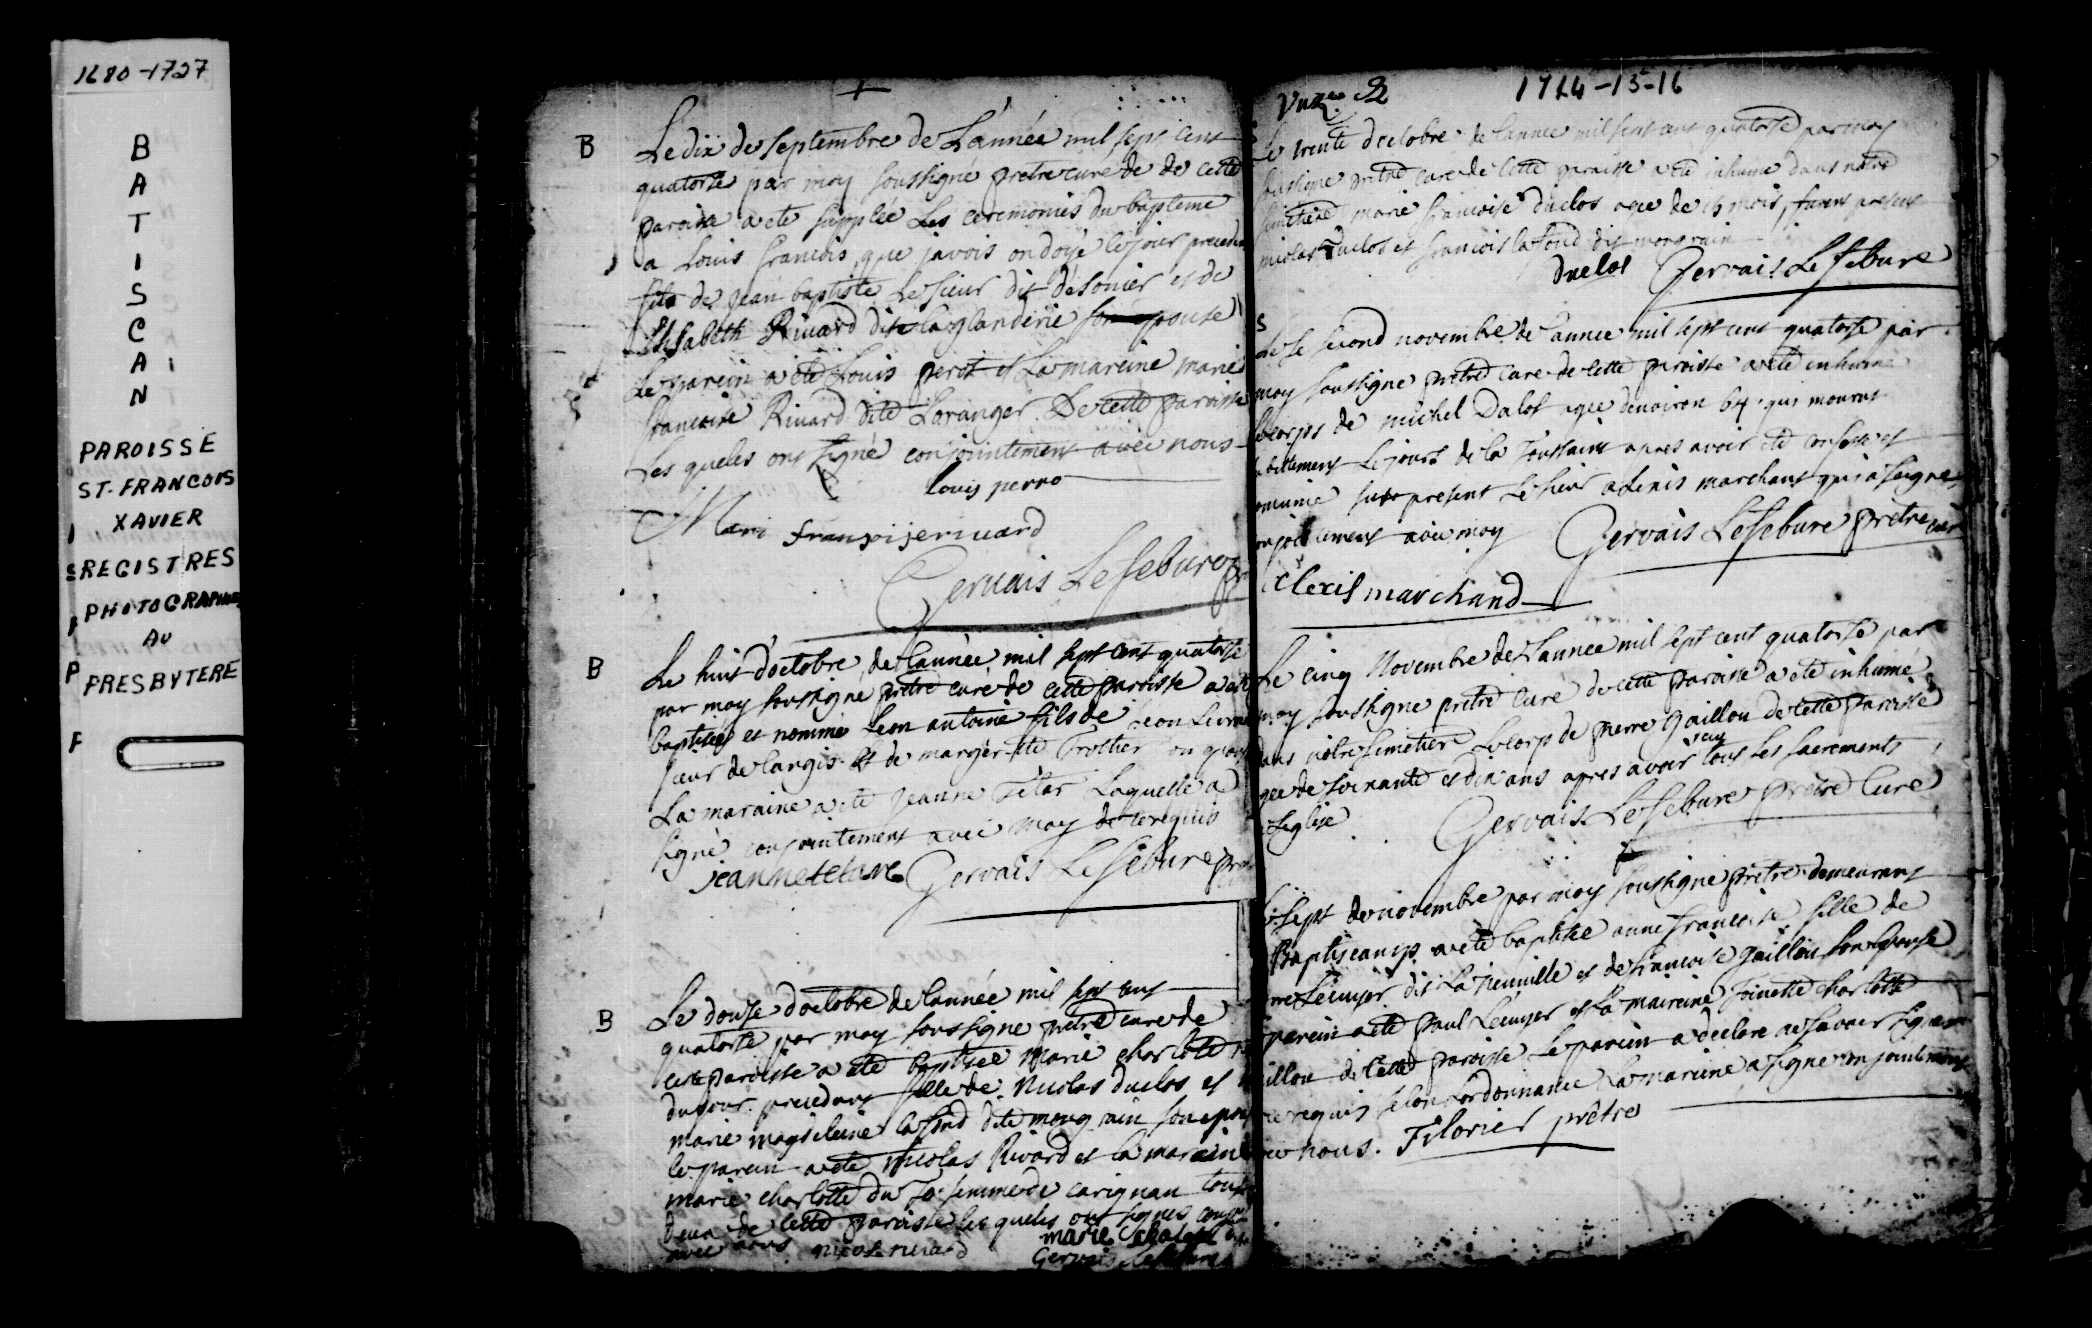 1680-1727
B
A
T
I
S
C
A
N
PAROISSE
ST-FRANCOIS
XAVIER
REGISTRES
PHOTOGRAPHIES
AU
PRESBYTERE
B
Le dix de septembre de L'année mil sept cent
quatorse par moy soussigné pretre curé de de cette
paroisse a ete supplee Les ceremonies du bapteme
a Louis francois que javois ondoyé le jour preceden
fils de Jean baptiste Le sieur dit desonier et de
Elisabeth Rivard dite laglanderie son epouse
Le parein a été Louis perot et La mareine marie
francoise Rivard dite Loranger De cette paroisse
Les queles ont signé conjointement avec nous
Louis perro
Mari franxoijerivard
Gervais Lefebure p
B
Le huit d'octobre de Lannée mil sept cent quatorse
par moy soussigné pretre curé de cette paroisse a ete
baptisé et nommé Leon antoine fils de
sieur de langis et de margerite Trotier
La maraine a ete jeanne Tetar Laquelle a
signé conjointement avec moy de ce requis
jeannetetare Gervais Lefebure pre
B
Le douse doctobre de Lannée mil sept cent
quatorse par moy soussigne pretre cure de
cette paroisse a été baptisée marie charlotte
du jour precedent fille de Nicolas duclos et
marie magdeleine lafond dite mongrain son epou
le parein a ete Nicolas Rivard et la marein
marie charlotte du femme de carignan tous
deux de cette paroisse les queles ont signes conj
avec nous nicolerivard marie chalote
Gervais Lefebure
2 1714-15-16
Le trente doctobre de Lannee mil sept cent quatorse par moy
soussigne pretre cure de cette paroisse a ete inhume dans notre
simetiere marie francoise duclos agee de 15 mois, furent present
nicolas Duclos et francois lafond dit mongrain
duclos Gervais Lefebure
S
Le second novembre de Lannee mil sept cent quatorse par
moy soussigne pretre cure de cette paroisse a ete inhumé
le corps de michel Dalof agee denviron 64 qui mourut
subittement Le jour de la Toussaint apres avoir ete confesse et
comunié fut present Le sieur alexis marchant qui a signe
conjointement avec moy Gervais Lefebure pretre curé
alexis marchand
Le cinq Novembre de Lannee mil sept cent quatorse par
moy soussigne pretre curé de cette paroisse a ete inhumé
dans notre simetier Le corps de pierre Gaillou de cette paroisse
agee de soixante et dix ans apres avoir reçu tous les sacrements
de Leglise Gervais Lefebure pretre Curé
Le sept de novembre par moy soussigne prêtre demeurant
Baptiscamp a été baptisée anne francoise fille de
pierre Lécuyer dit La Jeunille et de francoise Gaillou son epouse
Le parein a été paul Lécuyer et La mareine Toinette charlotte
Gaillou de cette paroisse Le parein a declare ne savoir signer
de ce requis selon Lordonnance La mareine a signe conjointement
avec nous. Filorier prêtre